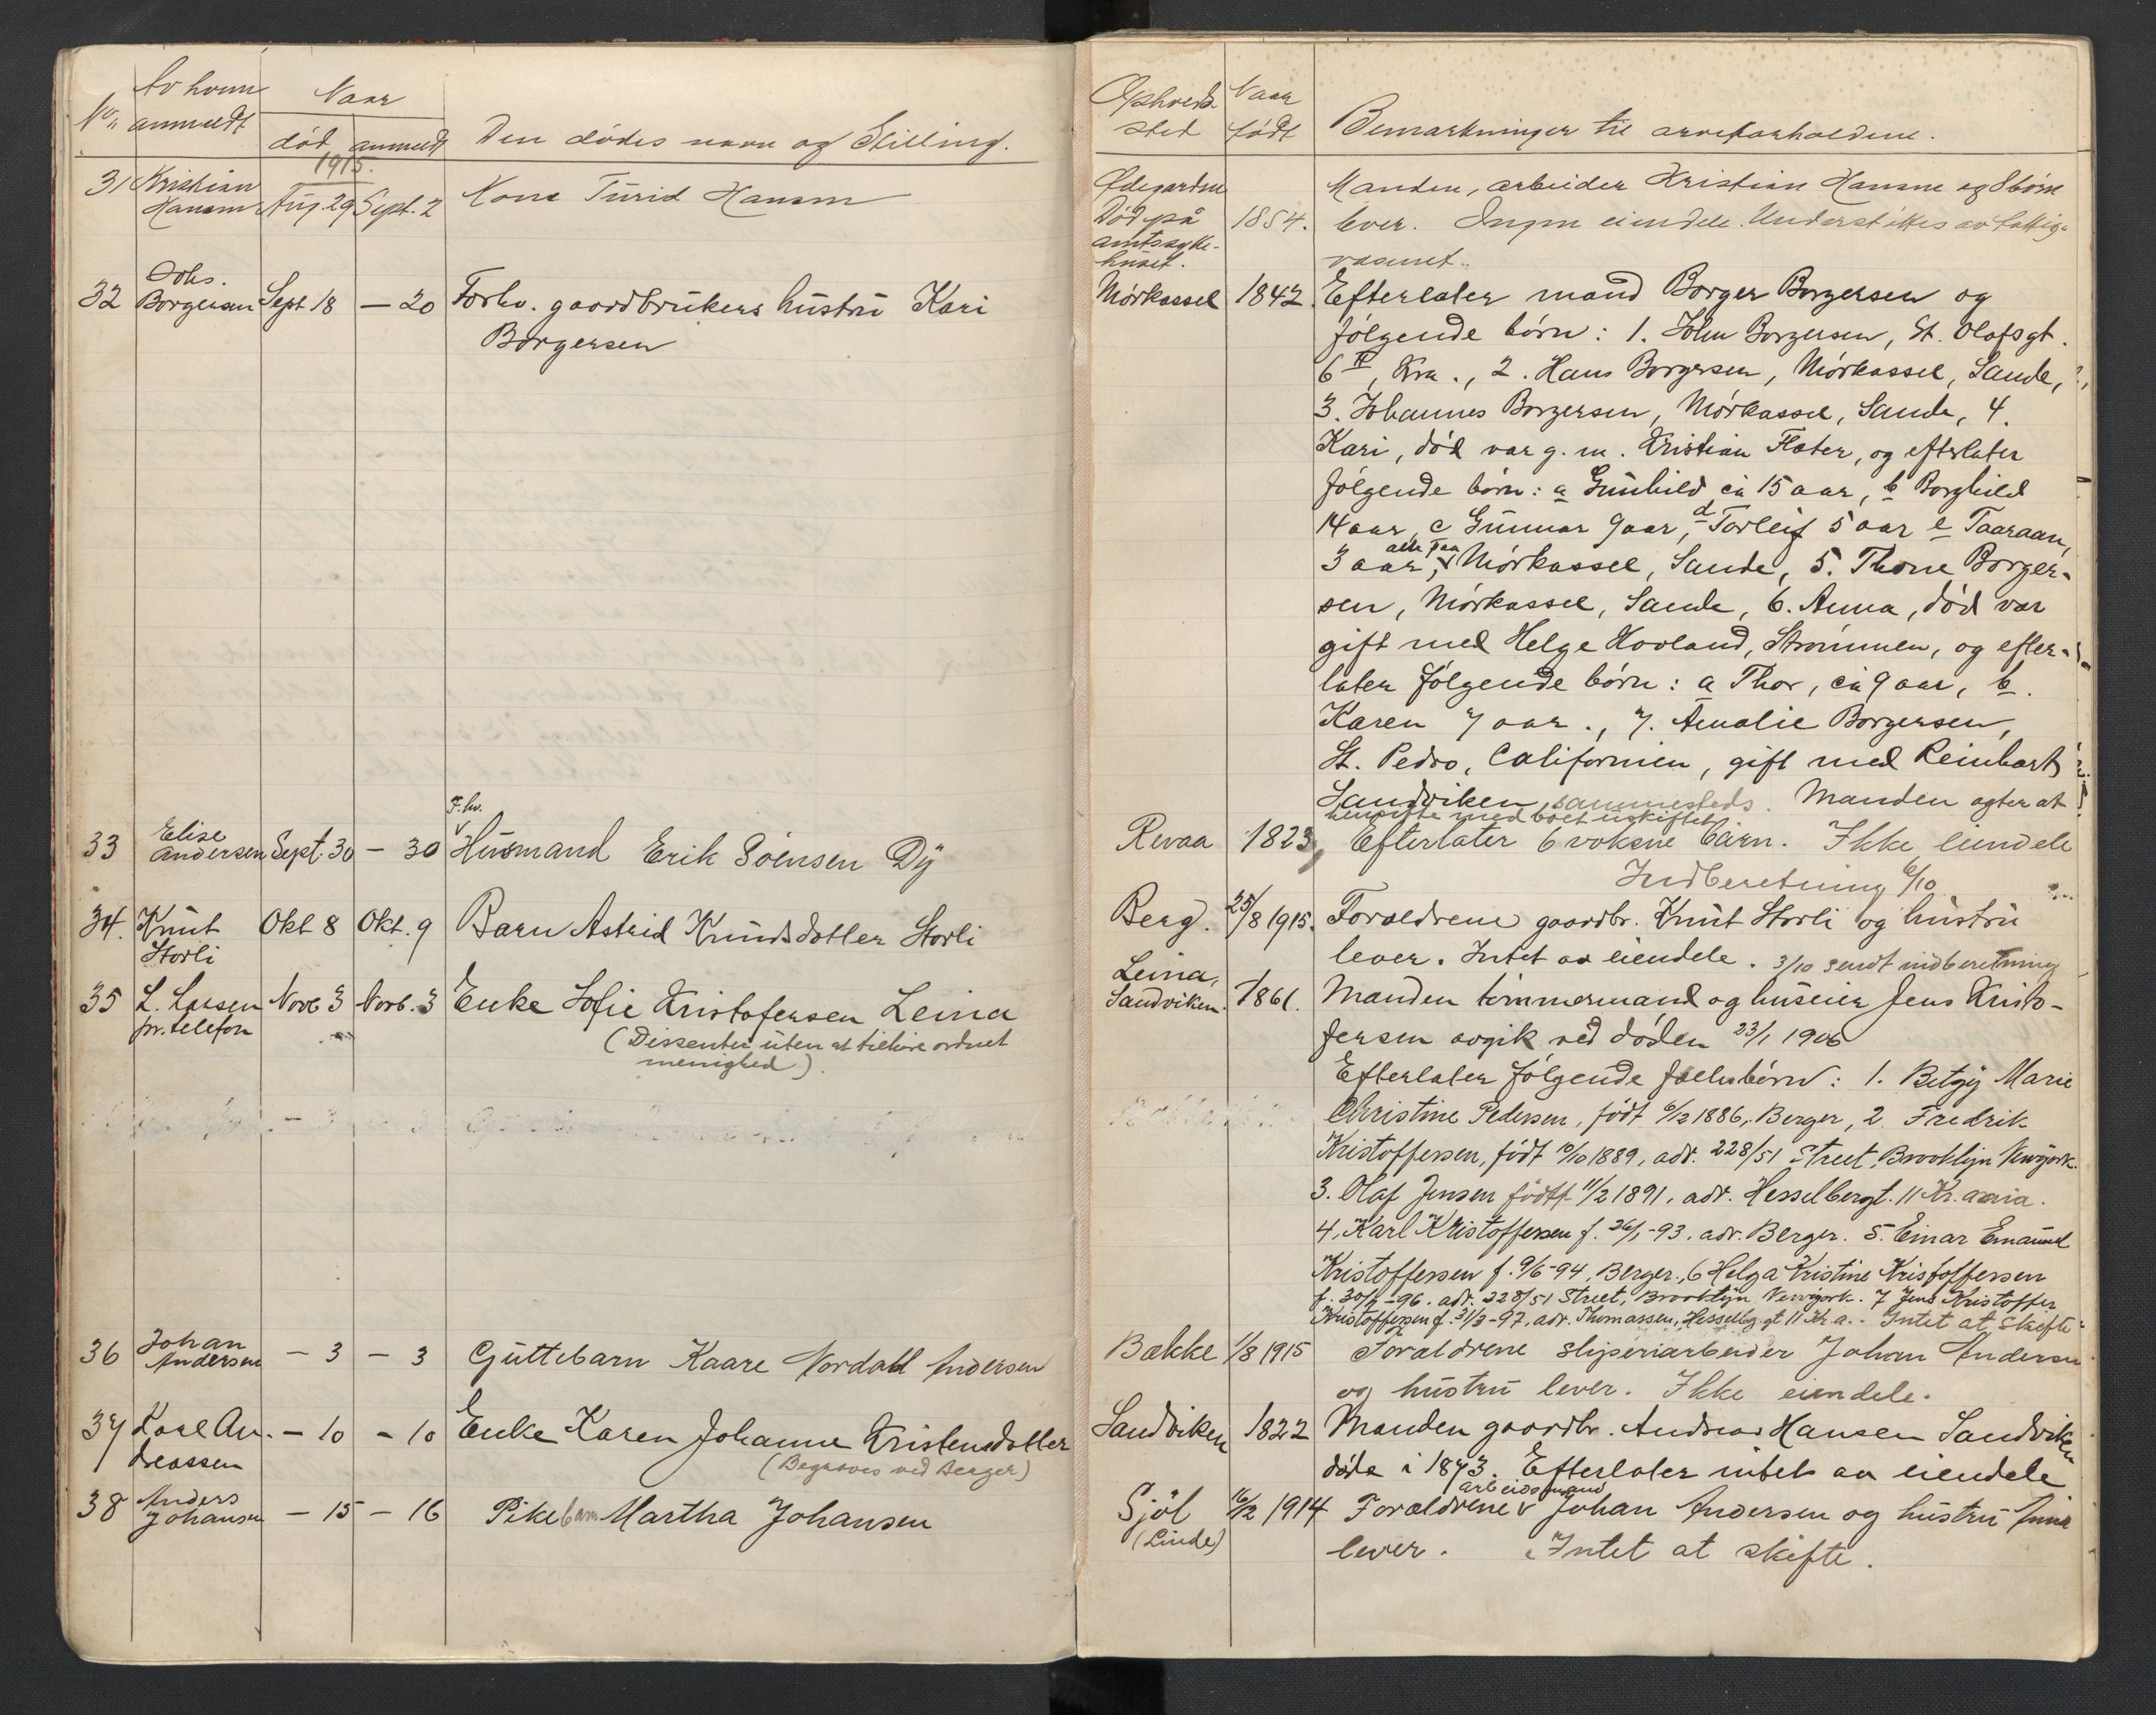 No. Av hvem anmeldt Naar død anmeldt Den dødes navn og Stilling.
1915.
31 Kristian Hansen Aug. 29 Sept. 2 Kone Turid Hansen
32 Johs. Borgersen Sept 18 — 20 Forhv. gaardbrukers hustru Kari
Borgersen
33 Elise Andersen Sept. 30 — 30 F.hv. Husmand Erik Sörensen Dy
34. Knut Storli Okt 8 Okt. 9 Barn Astrid Knudsdatter Storli
35 L. Larsen pr. telefon Novb 3 Novb. 3 Enke Sofie Kristofersen Leina
(Dissenter uten at tilhøre ordnet
menighed).
36 Johan Andersen — 3 — 3 Guttebarn Kaare Nordahl Andersen
37 Karl Andreassen — 10 — 10 Enke Karen Johanne Kristensdatter
(Begraves ved Berger)
38 Anders Johansen — 15 — 16 Pikebarn Martha Johansen
Opholdssted Naar født Bemærkninger til arveforholdene.
Ødegarden
Død på
amtssyke-
huset.
1854.
Manden, arbeider Kristian Hansen og 8 børn
lever. Ingen eiendele. Understøttes av fattig-
væsenet.
Mörkassel 1842. Efterlater mand Borger Borgersen og
følgende börn: 1. John Borgersen, St. Olafsgt.
6 II, Kra., 2. Hans Borgersen, Mörkassel, Sande,
3. Johannes Borgersen, Mörkassel, Sande, 4.
Kari, död var g. m. Kristian Flater, og efterlater
følgende börn: a Gunhild ca 15 aar, b Borghild
14 aar, c Gunnar 9 aar, d Torleif 5 aar e Taaraan,
3 aar, alle paa Mörkassel, Sande, 5. Thone Borger-
sen, Mörkassel, Sande, 6. Anna, död var
gift med Helge Hovland, Strömmen, og efter-
later følgende börn: a Thor, ca 9 aar, b.
Karen 7 aar., 7. Amalie Borgersen,
St. Pedro, Californien, gift med Reinhart
Sandviken, sammesteds. Manden agter at
hensitte med boet uskiftet
Revaa 1823 Efterlater 6 voksne börn. Ikke eiendele
Indberetning 6/10
Berg. 25/8 1915. Forældrene gaardbr. Knut Storli og hustru
lever. Intet av eiendele. 3/10 sendt indberetning
Leina,
Sandviken. 1861. Manden tømmermand og huseier Jens Kristo-
fersen avgik ved döden 23/1 1906
Efterlater følgende fællesbörn: 1. Betzy Marie
Christine Pedersen, født 6/12 1886, Berger, 2. Fredrik
Kristoffersen, født 10/10 1889, adr. 228/51 Street, Brooklyn Newyork.
3. Olaf Jensen født 11/2 1891, adr. Hesselbergt. 11 Kr.ania.
4. Karl Kristoffersen f. 26/1-93. adr. Berger. 5. Einar Emanuel
Kristoffersen f. 9/6-94, Berger., 6 Helga Kristine Kristoffersen
f. 30/9-96. adr. 228/51 Street, Brooklyn Newyork. 7 Jens Kristoffer
Kristoffersen f. 31/3-97, adr. Thomassen, Hesselbg.gt 11 Kr a. - Intet at skifte
Bække 1/8 1915 Forældrene sliperiarbeider Johan Andersen
og hustru lever. Ikke eiendele.
Sandviken 1822 Manden gaardbr. Andreas Hansen Sandviken
döde i 1873. Efterlater intet av eiendele
Sjöl
(Linde) 16/12 1914 Forældrene arbeidsmand Johan Andersen og hustru
lever. Intet at skifte.